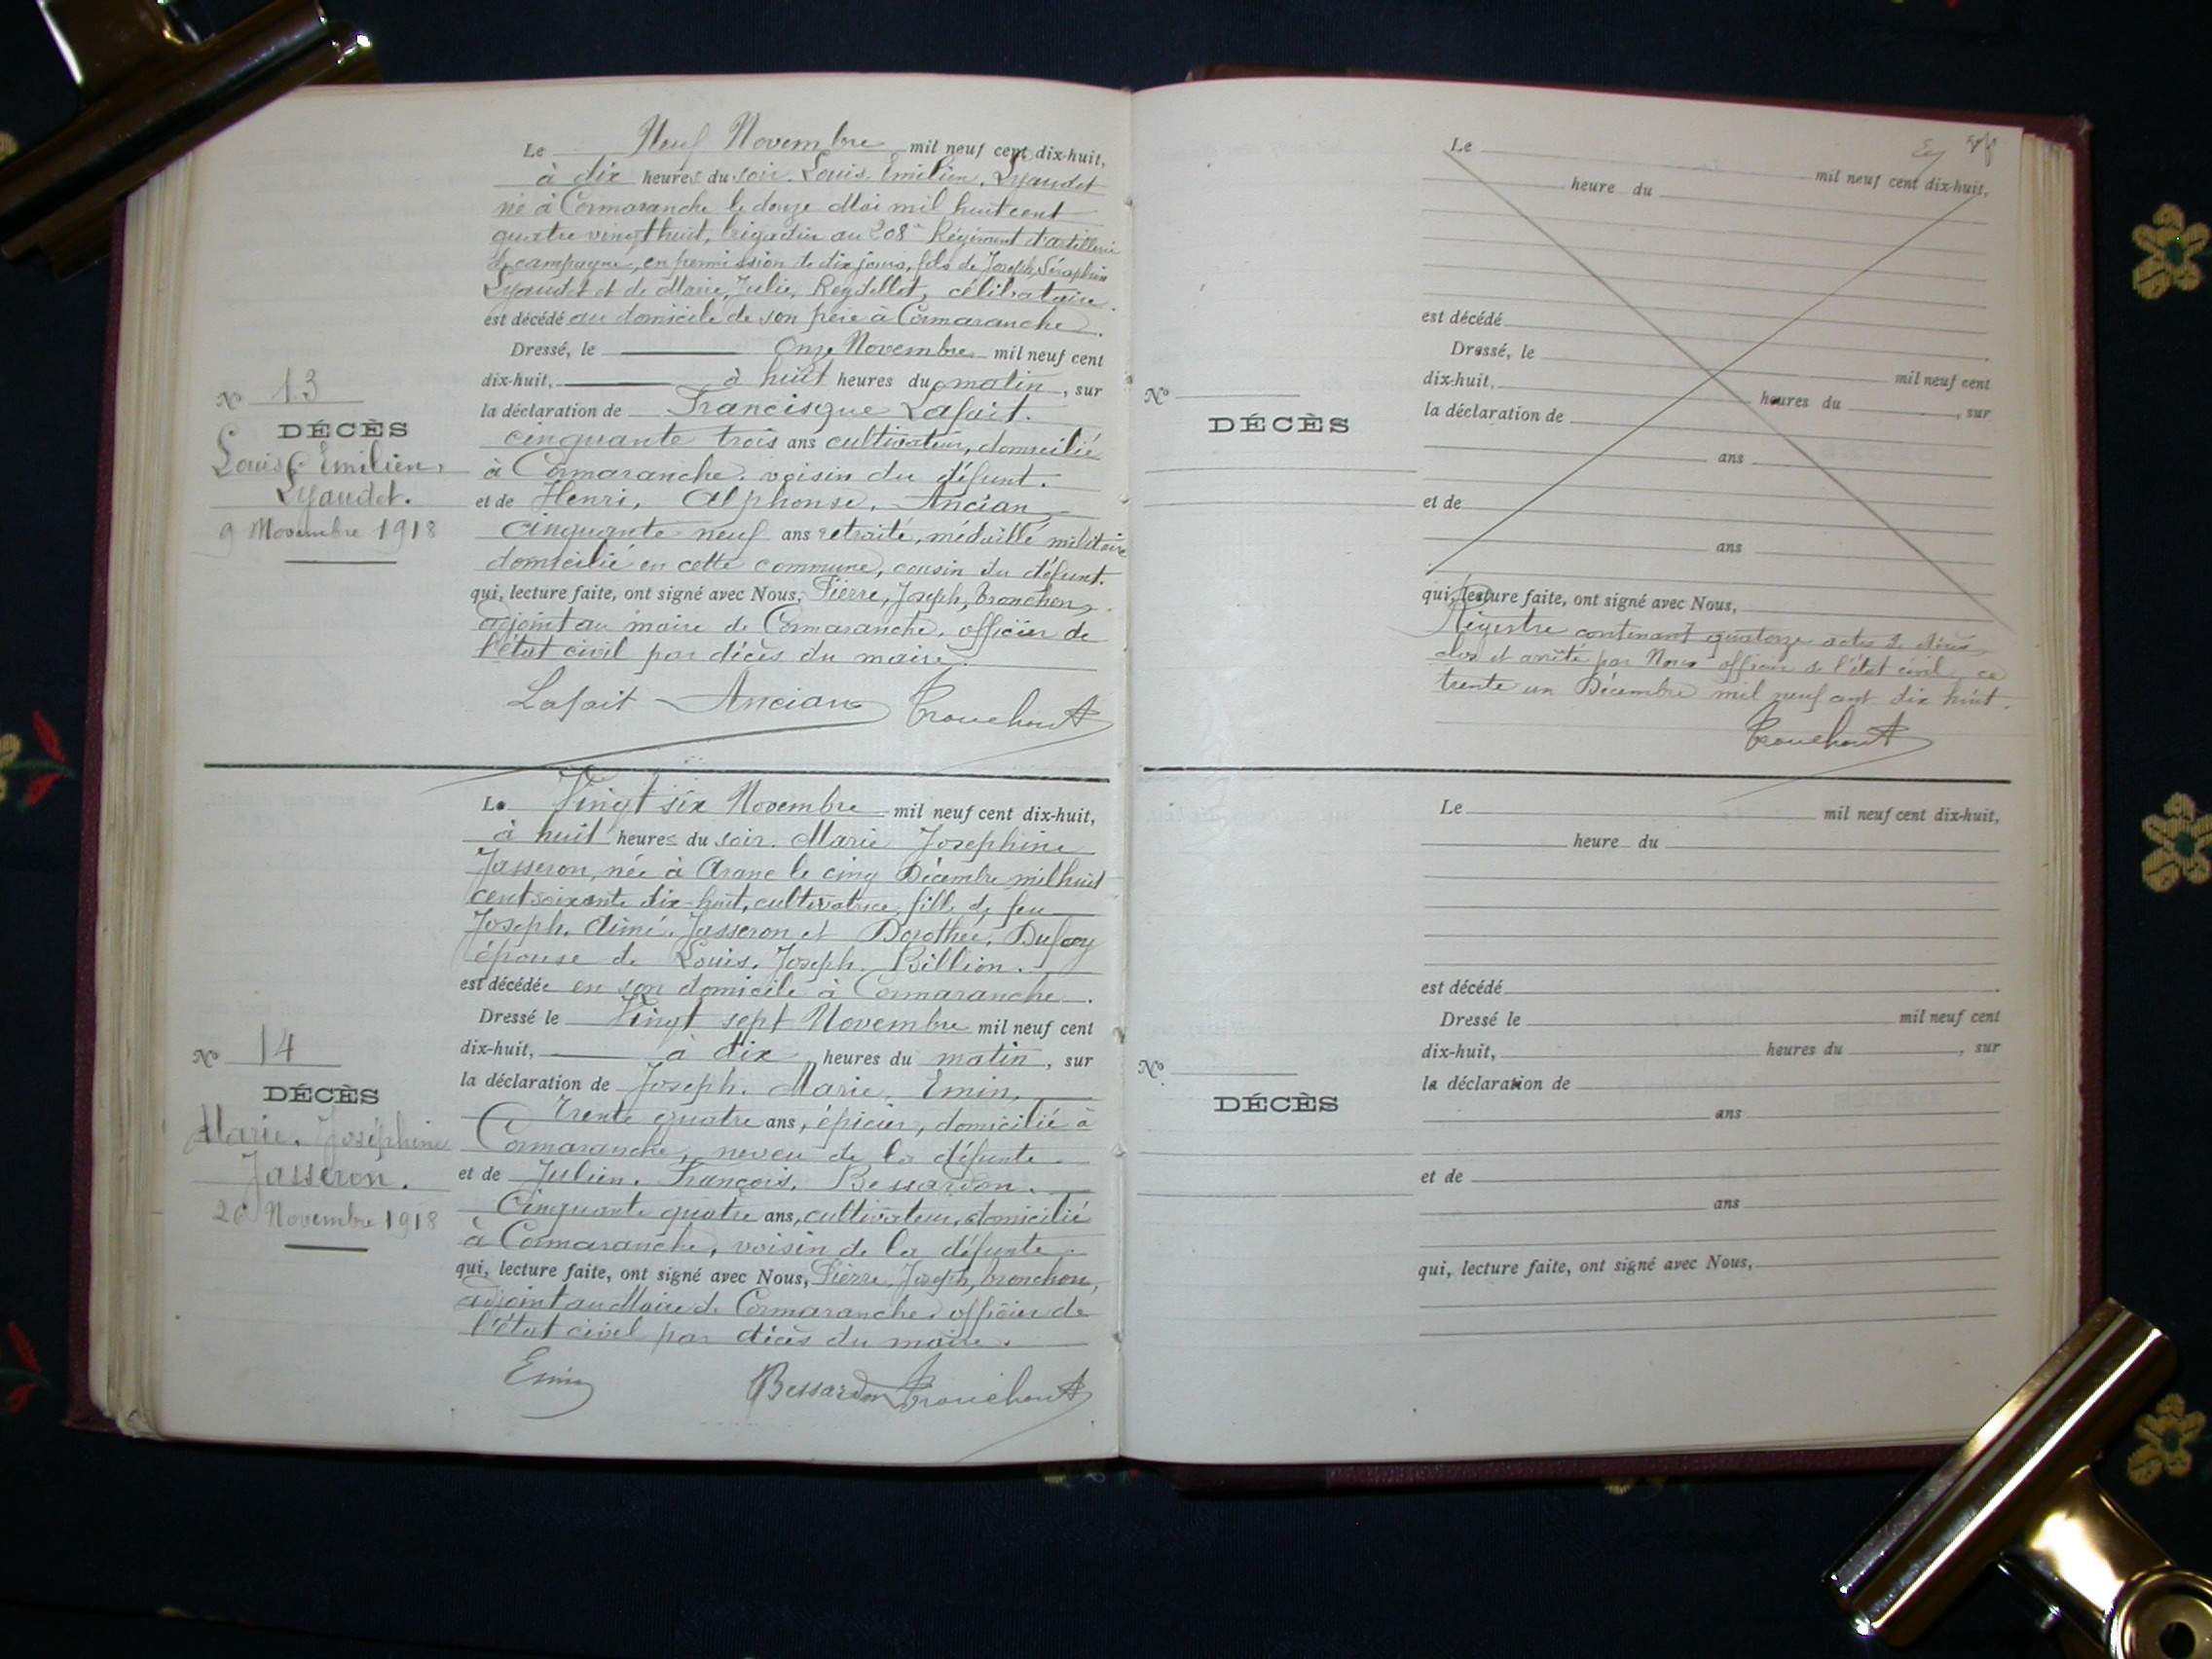 Le Neuf Novembre mil neuf cent dix-huit,
à dix heures du soir. Louis. Emilien. Lyaudet
né à Cormaranche le douze Mai mil huit cent
quatre vingt huit, brigadier au 208e Régiment d'artillerie
de campagne, en permission de dix jours, fils de Joseph, Séraphin
Lyaudet et de Marie, Julie, Reydellet, célibataire.
est décédé au domicile de son père à Cormaranche.
Dressé, le Onze Novembre mil neuf cent
dix-huit, à huit heures du matin, sur
la déclaration de Francisque Lafait.
cinquante trois ans cultivateur, domicilié
à Cormaranche. voisin du défunt.
et de Henri, Alphonse, Ancian,
cinquante neuf ans retraité, médaillé militaire
domicilié en cette commune, cousin du défunt.
qui, lecture faite, ont signé avec Nous, Pierre, Joseph,
adjoint au maire de Cormaranche, officier de
l'état civil par décès du maire.
Lafait Ancian
No 13
DÉCÈS
Louis Emilien,
Lyaudet.
9 Novembre 1918
Le Vingt six Novembre mil neuf cent dix-huit,
à huit heures du soir. Marie Josephine
Jasseron, née à Aranc le cinq Décembre mil huit
cent soixante dix-huit, cultivatrice, fille de feu
Joseph. Aimé. Jasseron et Dorothée,
épouse de Louis. Joseph. Billion.
est décédée en son domicile à Cormaranche.
Dressé le Vingt sept Novembre mil neuf cent
dix-huit, à dix heures du matin, sur
la déclaration de Joseph. Marie. Emin,
Trente quatre ans, épicier, domicilié à
Cormaranche, neveu de la défunte
et de Julien. François. Bessardon.
Cinquante quatre ans, cultivateur, domicilié
à Cormaranche, voisin de la défunte.
qui, lecture faite, ont signé avec Nous, Pierre. Joseph,
adjoint au Maire de Cormaranche. officier de
l'état civil par décès du maire.
Emin Bessardon
No 14
DÉCÈS
Marie. Joséphine
Jasseron.
26 Novembre 1918
Le mil neuf cent dix-huit,
heure du
est décédé
Dressé, le mil neuf cent
dix-huit, heures du , sur
la déclaration de
ans
et de
ans
qui, lecture faite, ont signé avec Nous,
Régistre contenant quatorze actes de décès
clos et arrêté par Nous officier de l'état civil, ce
trente un Décembre mil neuf cent dix huit.
No
DÉCÈS
Le mil neuf cent dix-huit,
heure du
est décédé
Dressé le mil neuf cent
dix-huit, heures du , sur
la déclaration de
ans
et de
ans
qui, lecture faite, ont signé avec Nous,
No
DÉCÈS